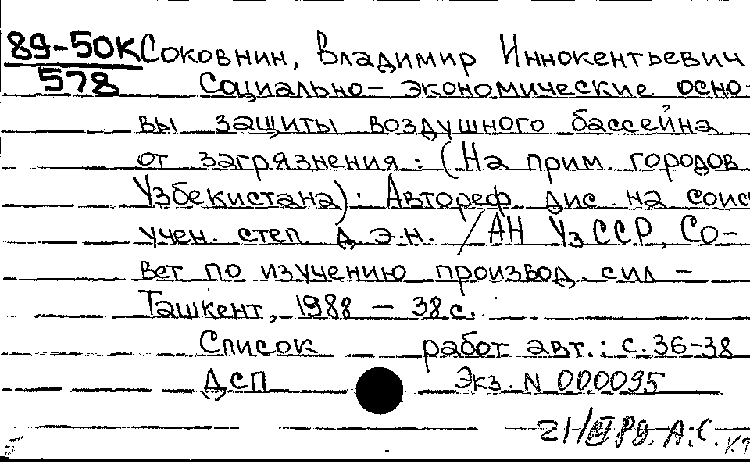 89-50К Соковнин, Владимир Иннокентьевич
578 Социально-экономические осно-
вы защиты воздушного бассейна
от загрязнения: (На прим. городов
Узбекистана): Автореф. дис. на соис
учен. степ. д.э.н. /АН УзССР, Со-
вет по изучению производ. сил -
Ташкент, 1988 - 38 с.
Список работ авт.: с. 36-38
ДСП Экз. N 000095
А.С.